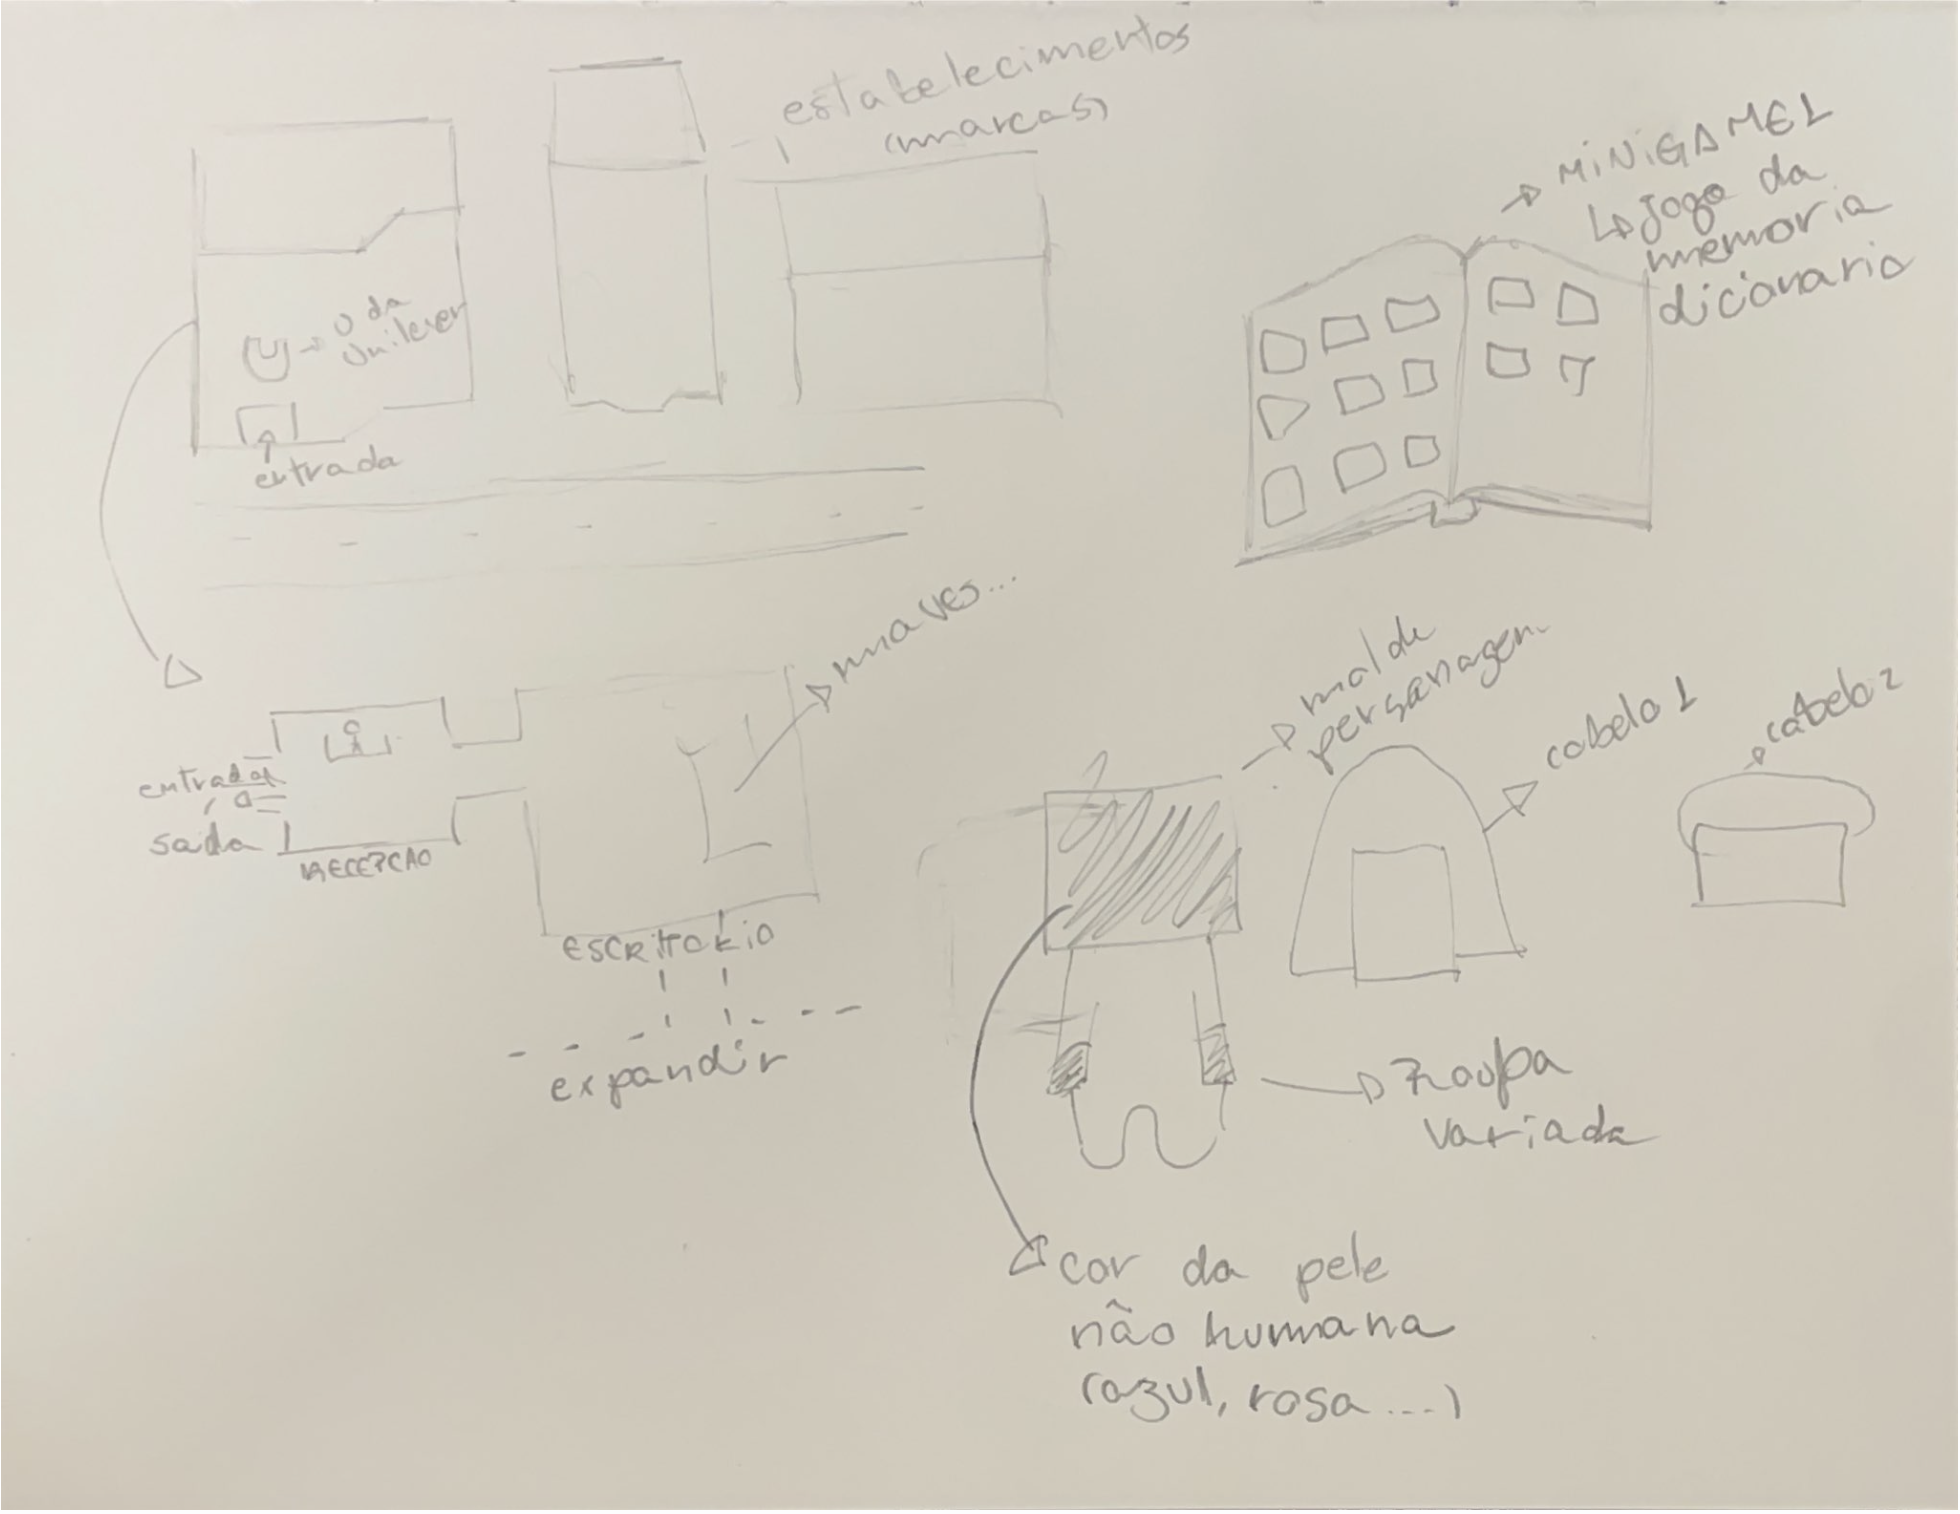 estabelecimentos
(marcas)
U da
Unilever
entrada
MiNiGAME 1
↳ Jogo da
memoria
dicionario
entrada
saida
RECEPCAO
ESCRITORIO
expandir
molde
personagem
cabelo 1
cabelo 2
Roupa
variada
cor da pele
não humana
(azul, rosa ...)